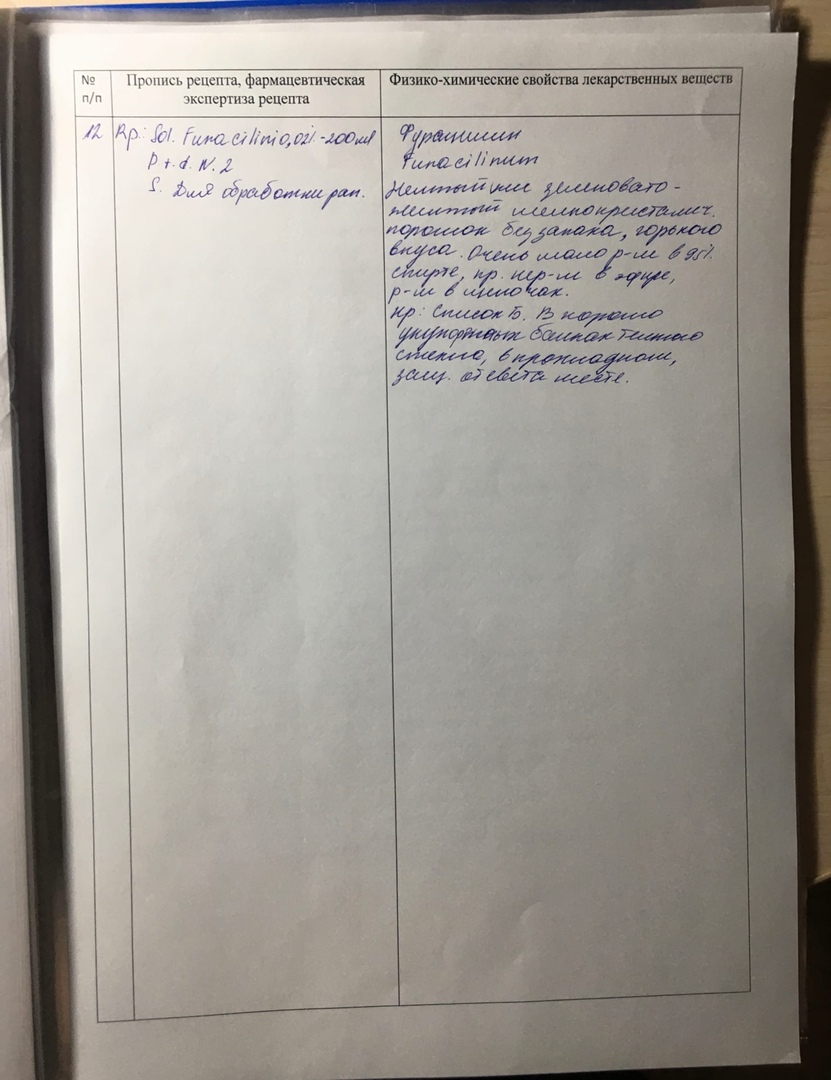 №
п/п
Пропись рецепта, фармацевтическая
экспертиза рецепта
Физико-химические свойства лекарственных веществ
12
Rp.: Sol. Furacilini 0,02% - 200 ml
D. t. d. N. 2
S. Для обработки ран.
Фурацилин
Furacilinum
Желтый или зеленовато-
желтый мелкокристалич.
порошок без запаха, горького
вкуса. Очень мало р-м в 95%
спирте, пр. нер-м в эфире,
р-м в щелочах.
Хр: Список Б. В хорошо
укупоренных банках темного
стекла, в прохладном,
защ. от света месте.